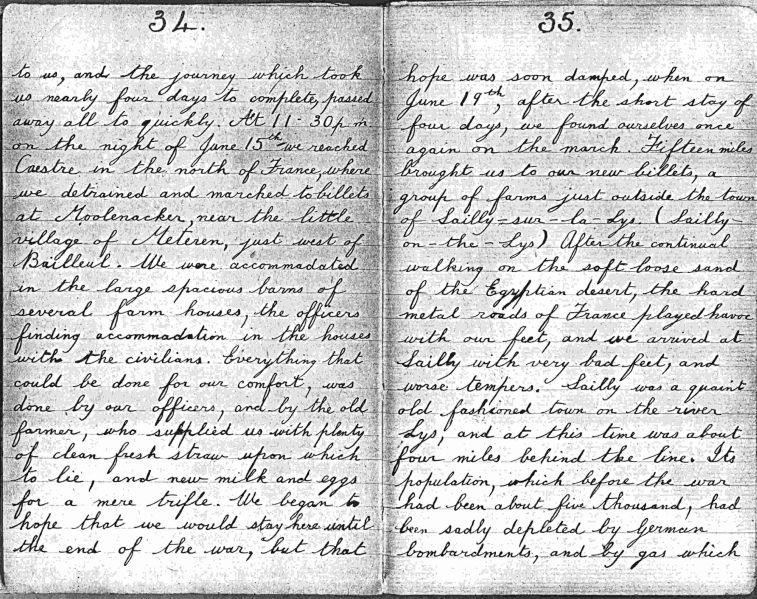 34.
to us, and the journey which took
us nearly four days to complete, passed
away all to quickly. At 11-30 p.m
on the night of June 15th we reached
Caestre in the north of France, where
we detrained and marched to billets
at Moolenacker, near the little
village of Meteren, just west of
Bailleul. We were accommadated
in the large spacious barns of
several farm houses, the officers
finding accommadation in the houses
with the civilians. Everything that
could be done for our comfort, was
done by our officers, and by the old
farmer, who supplied us with plenty
of clean fresh straw upon which
to lie, and new milk and eggs
for a mere trifle. We began to
hope that we would stay here until
the end of the war, but that
35.
hope was soon damped, when on
June 19th, after the short stay of
four days, we found ourselves once
again on the march. Fifteen miles
brought us to our new billets, a
group of farms just outside the town
of Sailly-sur-la-Lys. (Sailly-
on-the-Lys) After the continual
walking on the soft loose sand
of the Egyptian desert, the hard
metal roads of France played havoc
with our feet, and we arrived at
Sailly with very bad feet, and
worse tempers. Sailly was a quaint
old fashioned town on the river
Lys, and at this time was about
four miles behind the line. Its
population, which before the war
had been about five thousand, had
been sadly depleted by German
bombardments, and by gas which